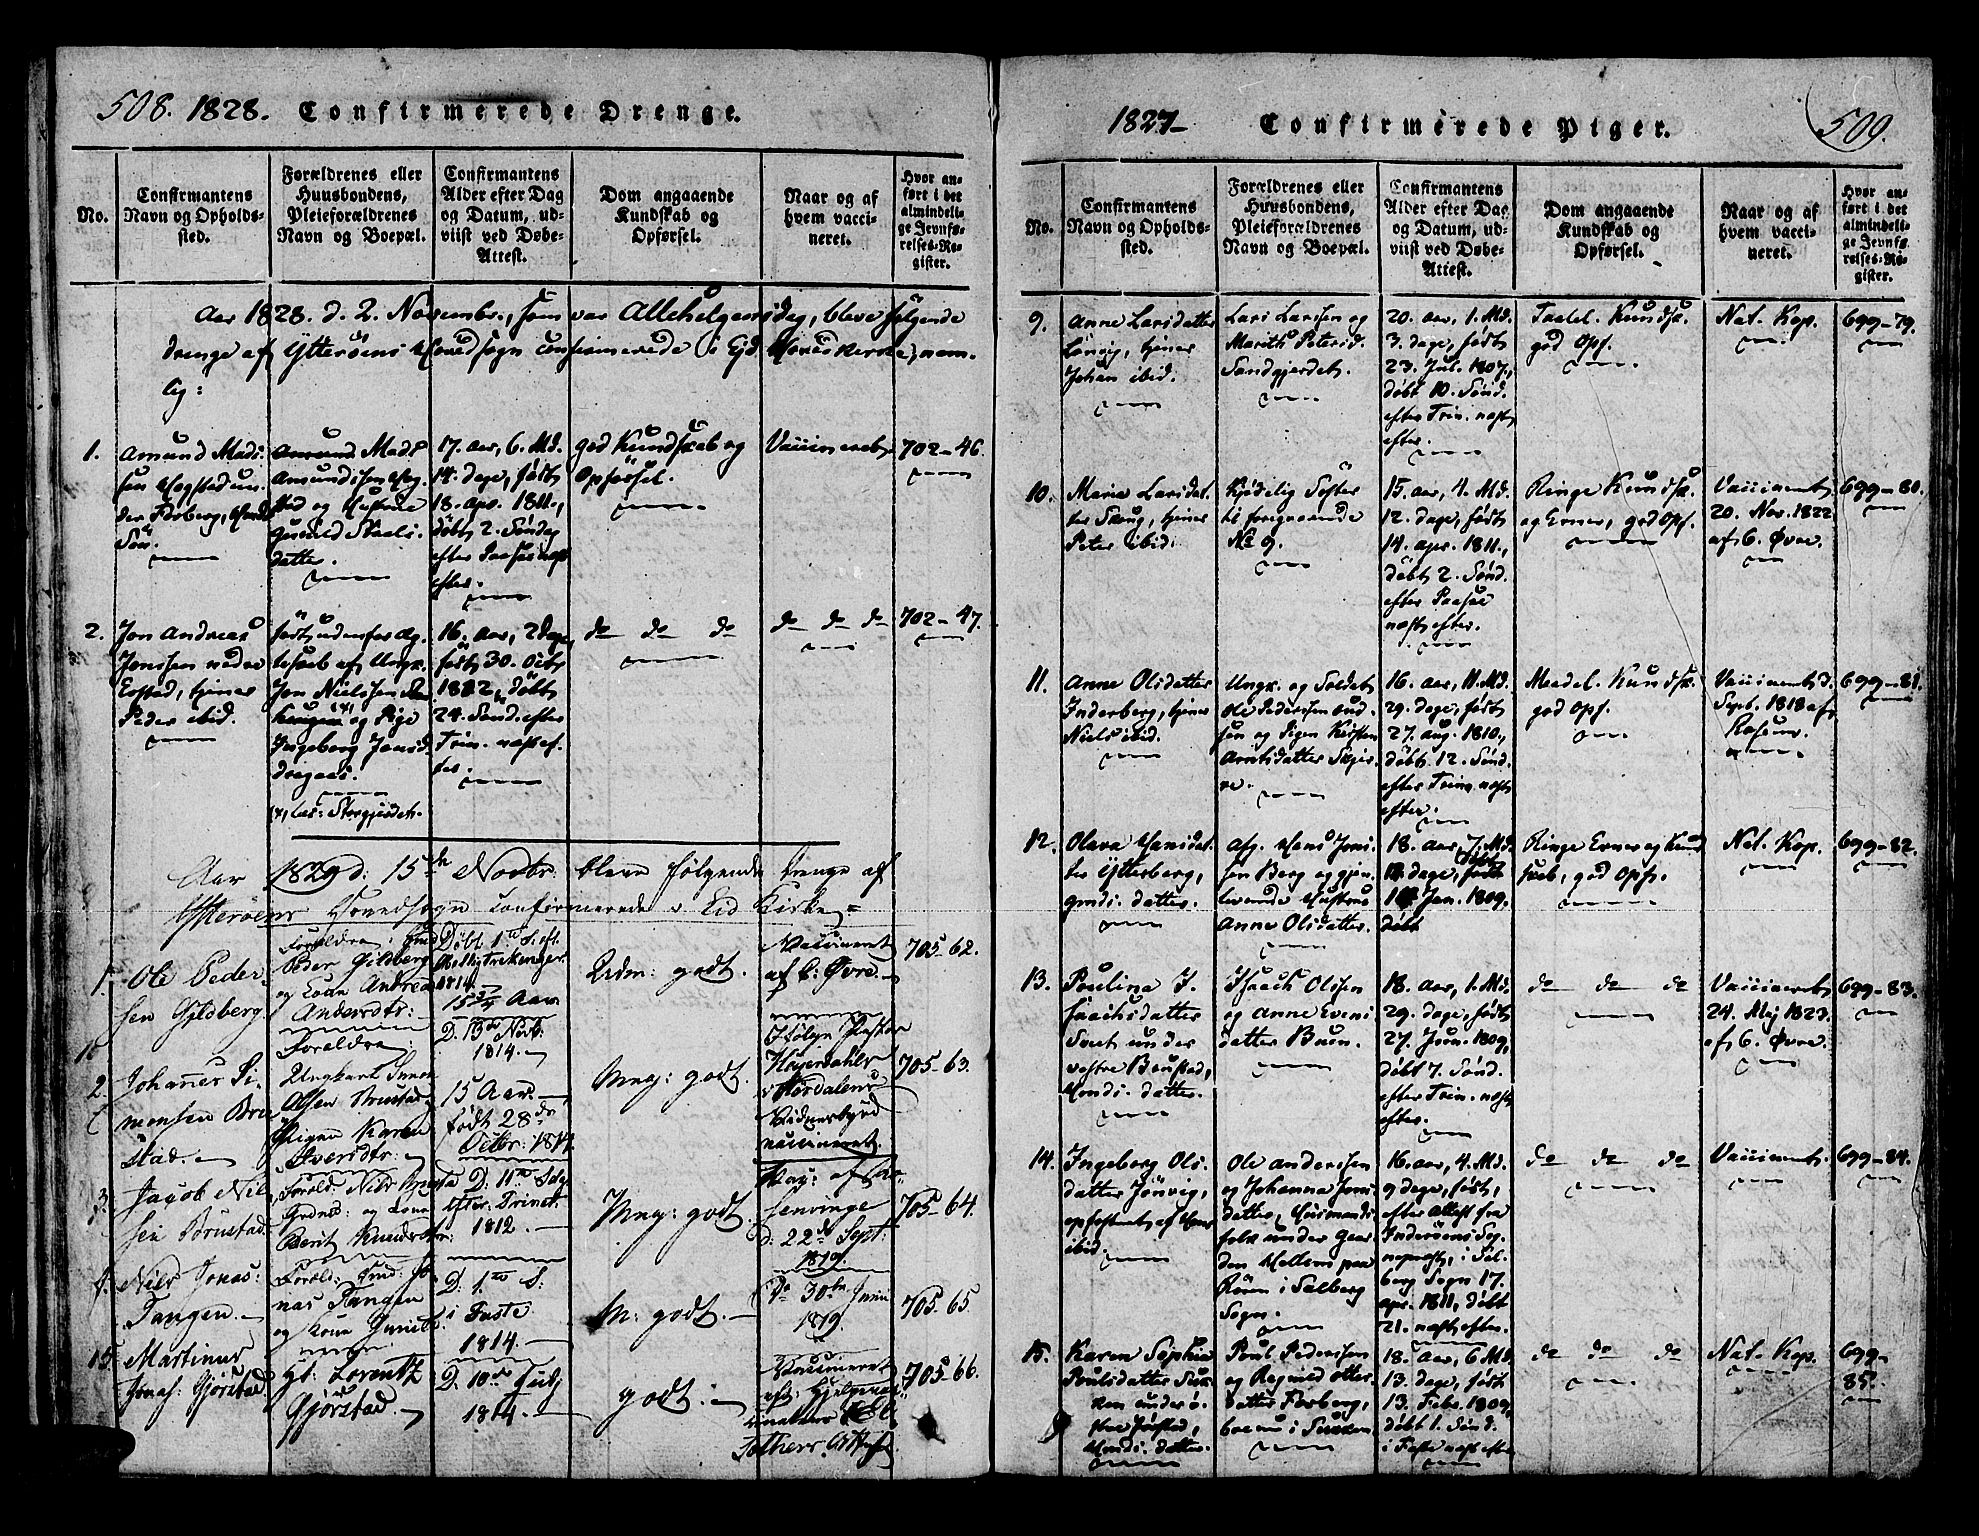 508. 1828. Confirmerede Drenge.
No.
Confirmantens
Navn og Opholds-
sted.
Forældrenes eller
Huusbondens,
Pleieforældrenes
Navn og Boepæl.
Confirmantens
Alder efter Dag
og Datum, ud-
viist ved Døbe-
Attest.
Dom angaaende
Kundskab og
Opførsel.
Naar og af
hvem vacci-
neret.
Hvor an-
ført i det
almindeli-
ge Jevnfø-
relses-Re-
gister.
Aar 1828. d. 2. Novembr., som var Allehelgensdag, bleve følgende
drenge af Ytterøens Hovedsogn confirmerede i Ejd Hovedkirke, nem-
lig:
1.
Amund Mads-
sen Hogstad un-
der Forberg,
Søn.
Amund Mads
Amundssen Hog-
stad og Hustrue
Gunild
datter.
17. aar, 6. Md.
14. dage, født
18. apr. 1811.,
døbt 2. Søndag
efter Paaske næst
efter.
god Kundskab og
Opførsel.
Vaccineret
702-46.
2.
Jon Andreas
Jonssen nedre
Eostad, tjener
Peder ibid.
født udenfor Æg-
teskab af Ungk.
Jon Nielssen
haugen og Pige
Ingeborg Jonsd.
(*, læs: Storgjerdet.
16. aar, 2 dage,
født 30. Octb
1812, døbt
24. Sønd. efter
Trin. næst ef-
ter.
do do do
do do do
702-47.
Aar 1829 d: 15de Novbr. bleve følgende Drenge af
Ytterøens Hovedsogn confirmerede i Eid Kirke =
1.
Ole Peder-
sen Gilberg
Forældre:
Peder Gilberg
og Kone Andrea
Andersdtr:
Døbt 1te S. eft.
Hellig trekonger
1814.
15 3/4 Aar
Udm: godt.
Vaccineret
af C: Øvre
705-62.
2.
Johannes Si-
monsen Bru-
stad.
Forældre:
Ungkarl Simon
Olsen Brustad
Pigen Karen
Iversdtr:
D. 13de Novb:
1814.
15 Aar.
født 28de
Octbr: 1814
Mag: godt.
Ifølge Pastor
Høyerdahls
i Værdalens
Vidnesbyrd
vaccineret.
705-63.
3.
Jacob Niel-
sen Brustad
Foræld: Niels
og Kone
Berit Knudsdtr:
D: 11te Sdg
efter Trinet.
1812.
Mag: godt
senvinge
d: 22de Sept:
1819.
705-64.
Niels Jonas:
Tangen.
Foræld: Jo-
nas Tangen
og Kone
D: 1te S:
i Faste
1814.
M: godt.
Do 30te Juni
1819.
705-65.
15.
Martinus
Jonas: Gjørstad
Lorentz
Gjørstad.
D: 10de July
1814.
godt.
Vaccineret
705-66.
1827- Confirmerede Piger. 509.
No.
Confirmantens
Navn og Opholds-
sted.
Forældrenes eller
Huusbondens,
Pleieforældrenes
Navn og Boepæl.
Confirmantens
Alder efter Dag
og Datum, ud-
viist ved Døbe-
Attest.
Dom angaaende
Kundskab og
Opførsel.
Naar og af
hvem vacci-
neret.
Hvor an-
ført i det
almindeli-
ge Jevnfø-
relses-Re-
gister.
9.
Anne Larsdatter
Lønvig, tjener
Johan ibid.
Lars Larssen og
Marith Petersd.
Sandgjerdet.
20. aar, 1. Md.
3. dage, født
23. Jul. 1807,
døbt 10. Sønd.
efter Trin. næst
efter.
Taalel. Kundsk.
god Opf.
Nat. Kop.
699-79.
10.
Maria Larsdat-
ter Skaug, tjener
Peter ibid.
Kjødelig Søster
til foregaaende
No 9.
15. aar, 4. Md.
12. dage, født
14. apr. 1811.,
døbt 2. Sønd.
efter Paaske
næst efter.
Ringe Kundsk.
og Evner, god Opf.
Vaccineret
20. Nov. 1822
af C. Øvre.
699-80.
11.
Anne Olsdatter
Inderberg, tjener
Niels ibid.
Ungk. og Soldat
Ole Pederssen
og Pigen Kirsten
Arntsdatter Skjer-
ve.
16. aar, 11. Md.
29. dage, født
27. aug. 1810.,
døbt 12. Sønd.
efter Trin. næst
efter.
Maadel. Kundsk.
god Opf.
Vaccineret d.
Sept. 1818 af
Rosum.
699-81.
12.
Olava Hansdat-
ter Ytterberg,
gmds. datter.
Afg. Hans Jons-
sen Berg og gjen-
levende Hustrue
Anne Olsdatter.
18. aar, 7. Md.
dage, født
Jan. 1809.
døbt
Ringe Evner og Kund-
skab, god Opf.
Nat. Kop.
699-82.
13.
Paulina I-
saachsdatter
under
vestre Brustad,
Hmds. datter.
Isaach Olssen
og Anne Evens-
datter Buen.
18. aar, 1. Md.
29. dage, født
27. Jun. 1809,
døbt 7. Sønd.
efter Trin. næst
efter.
do do do
Vaccineret
24. Maj 1823.
af C. Øvre.
699-83.
14.
Ingeborg Ols-
datter Jønvig,
opfostret af Hans
ibid.
Ole Anderssen
og Johanna Jons-
datter, Huusmands-
folk under Gaar-
den Hellem paa
Røren i Salberg
Sogn.
16. aar, 4. Md.
9 dage, født,
efter Attest fra
Inderøens Sog-
nepræst, i Sal-
berg Sogn 17.
apr. 1811, døbt
21. næst efter.
do do do
Vaccineret.
699-84.
15.
Karen Sophia
Poulsdatter
under ø-
stre Jørstad,
Hmds. datter.
Poul Pederssen
og Regined Otters-
datter Forberg,
18. Aar, 6 Md.
13. dage, født
13. Febr. 1809,
døbt 1. Sønd.
i Faste næst efter
do do do
Nat. Kop.
699-
85.